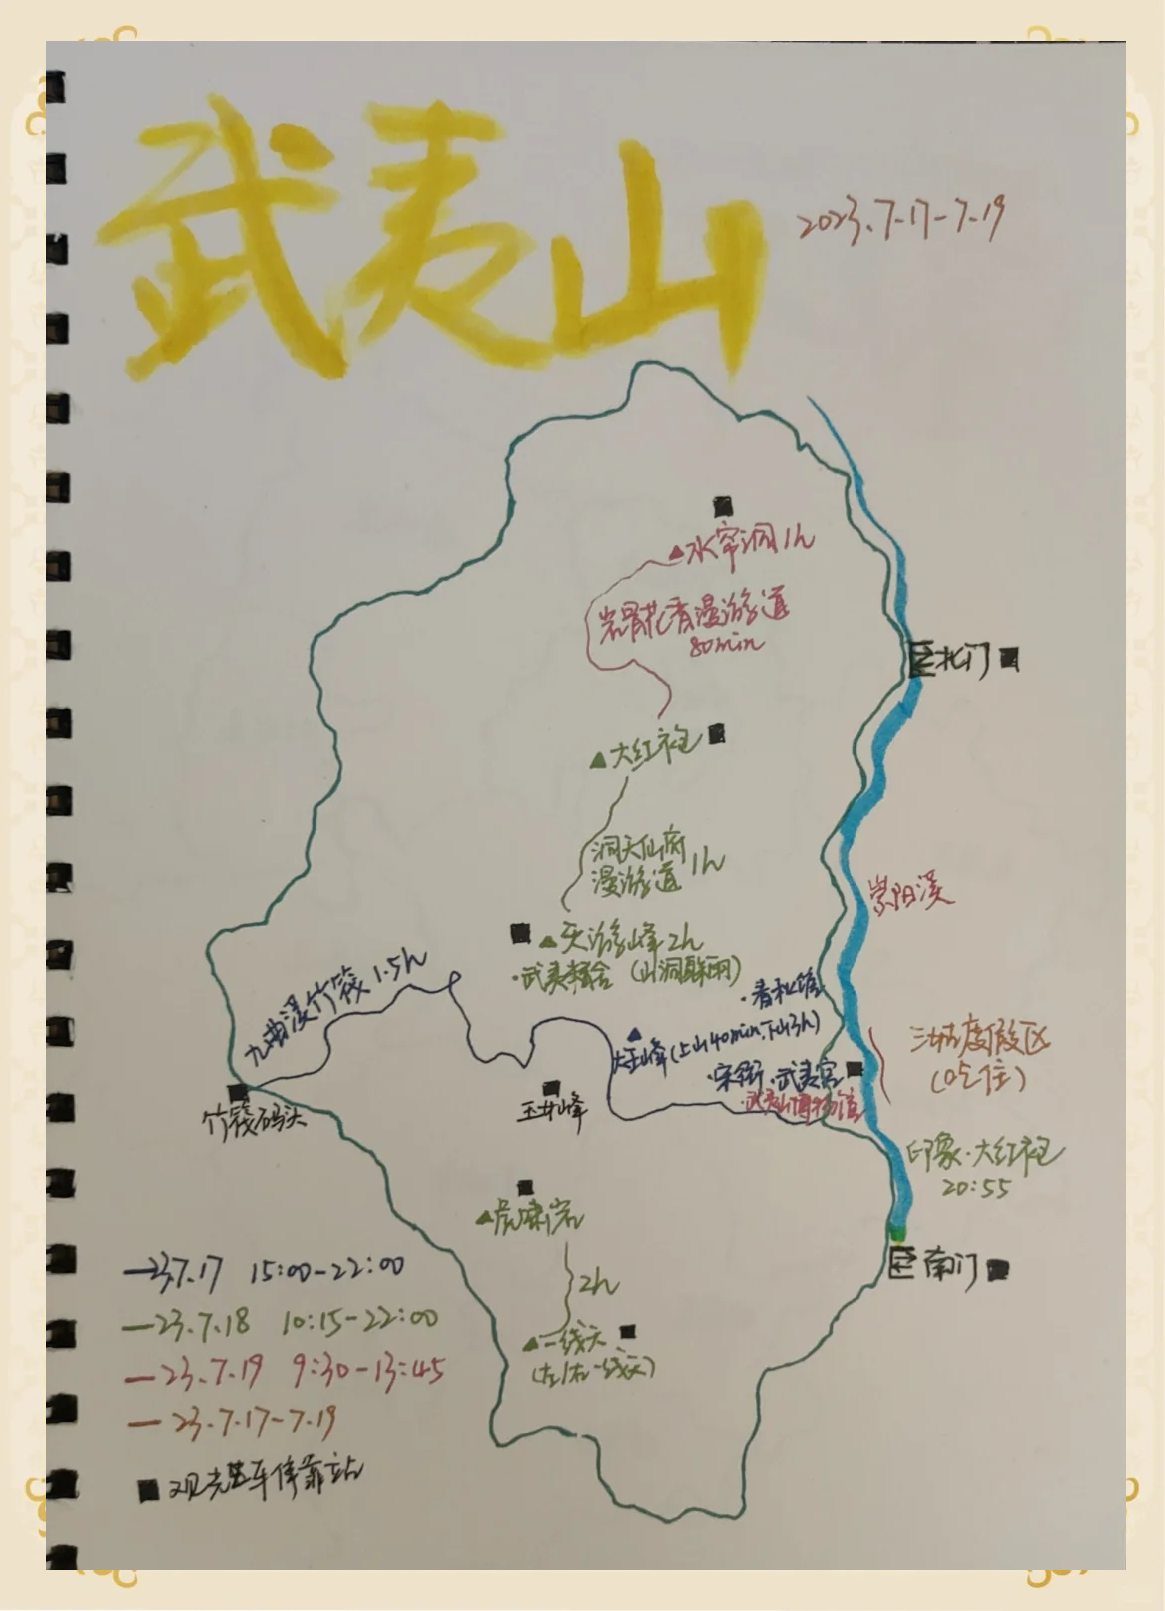 武夷山
2023.7-17-7.19
▲水帘洞1h
岩骨花香漫游道
80min
北门
▲大红袍
洞天仙府
漫游道 1h
崇阳溪
▲天游峰2h
·武夷精舍
九曲溪竹筏1.5h
·春秋馆
大王峰(上山40min.下山3h)
·宋街·武夷宫
·武夷山博物馆
度假区
(吃住)
竹筏码头
玉女峰
印象·大红袍
20:55
▲虎啸岩
南门
2h
▲一线天
(左/右一线天)
—23.7.17 15:00-22:00
—23.7.18 10:15-22:00
—23.7.19 9:30-13:45
—23.7.17-7.19
■观光车停靠站